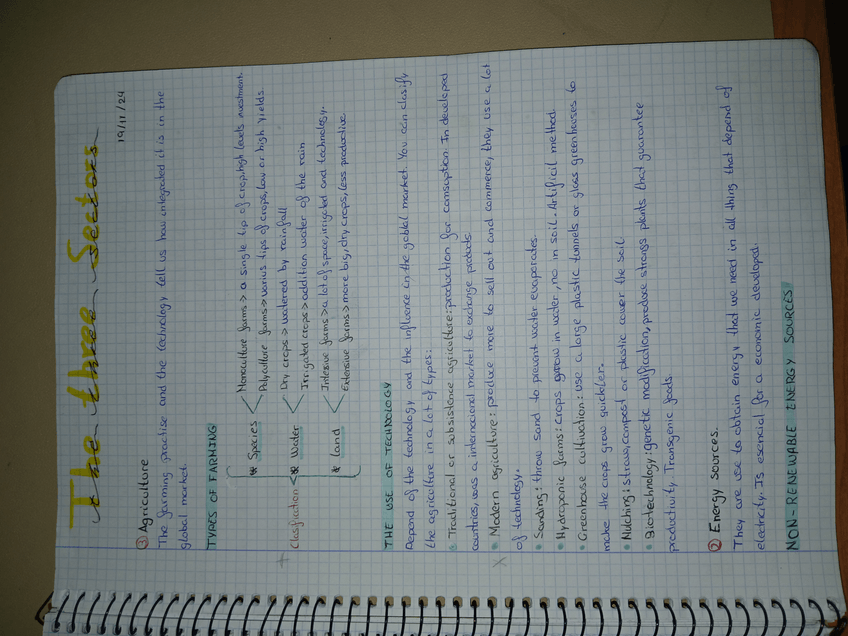 The three Sectors
19/11/24
① Agriculture
The farming practise and the technology tell us how integrated it is in the
global market.
TYPES OF FARMING
Clasification
* Species
Monoculture farms > a single tip of crop, high levels investment.
Polyculture farms > varius tips of crops, low or high yields.
* Water
Dry crops > watered by rainfall
Irrigated crops > addition water of the rain
* land
Intesive farms > a lot of space, irrigated and technology.
Extensive farms > more big, dry crops, less productive
THE USE OF TECNOLOGY
Depend of the technology and the influence in the goblal market. You can clasify
the agriculture in a lot of types:
• Traditional or subsistence agriculture: production for comsuption. In developed
countries, was a internacional market to exchange products.
• Modern agriculture: produce more to sell out and commerce, they use a lot
of technology.
• Sanding: throw sand to prevent water evaporates.
• Hydroponic farms: crops grow in water, no in soil. Artificil method.
• Greenhouse cultivation: use a large plastic tunnels or glass greenhouses to
make the crops grow quickler.
• Nulching: straw, compost or plastic cower the soil
• Biotechnology: genetic modification, produce strongs plants that guarantee
productivity. Transgenic foods.
② Energy sources.
They are use to obtain energy that we need in all thing that depend of
electricity. Is esencial for a economic developed.
NON-RENEWABLE ENERGY SOURCES